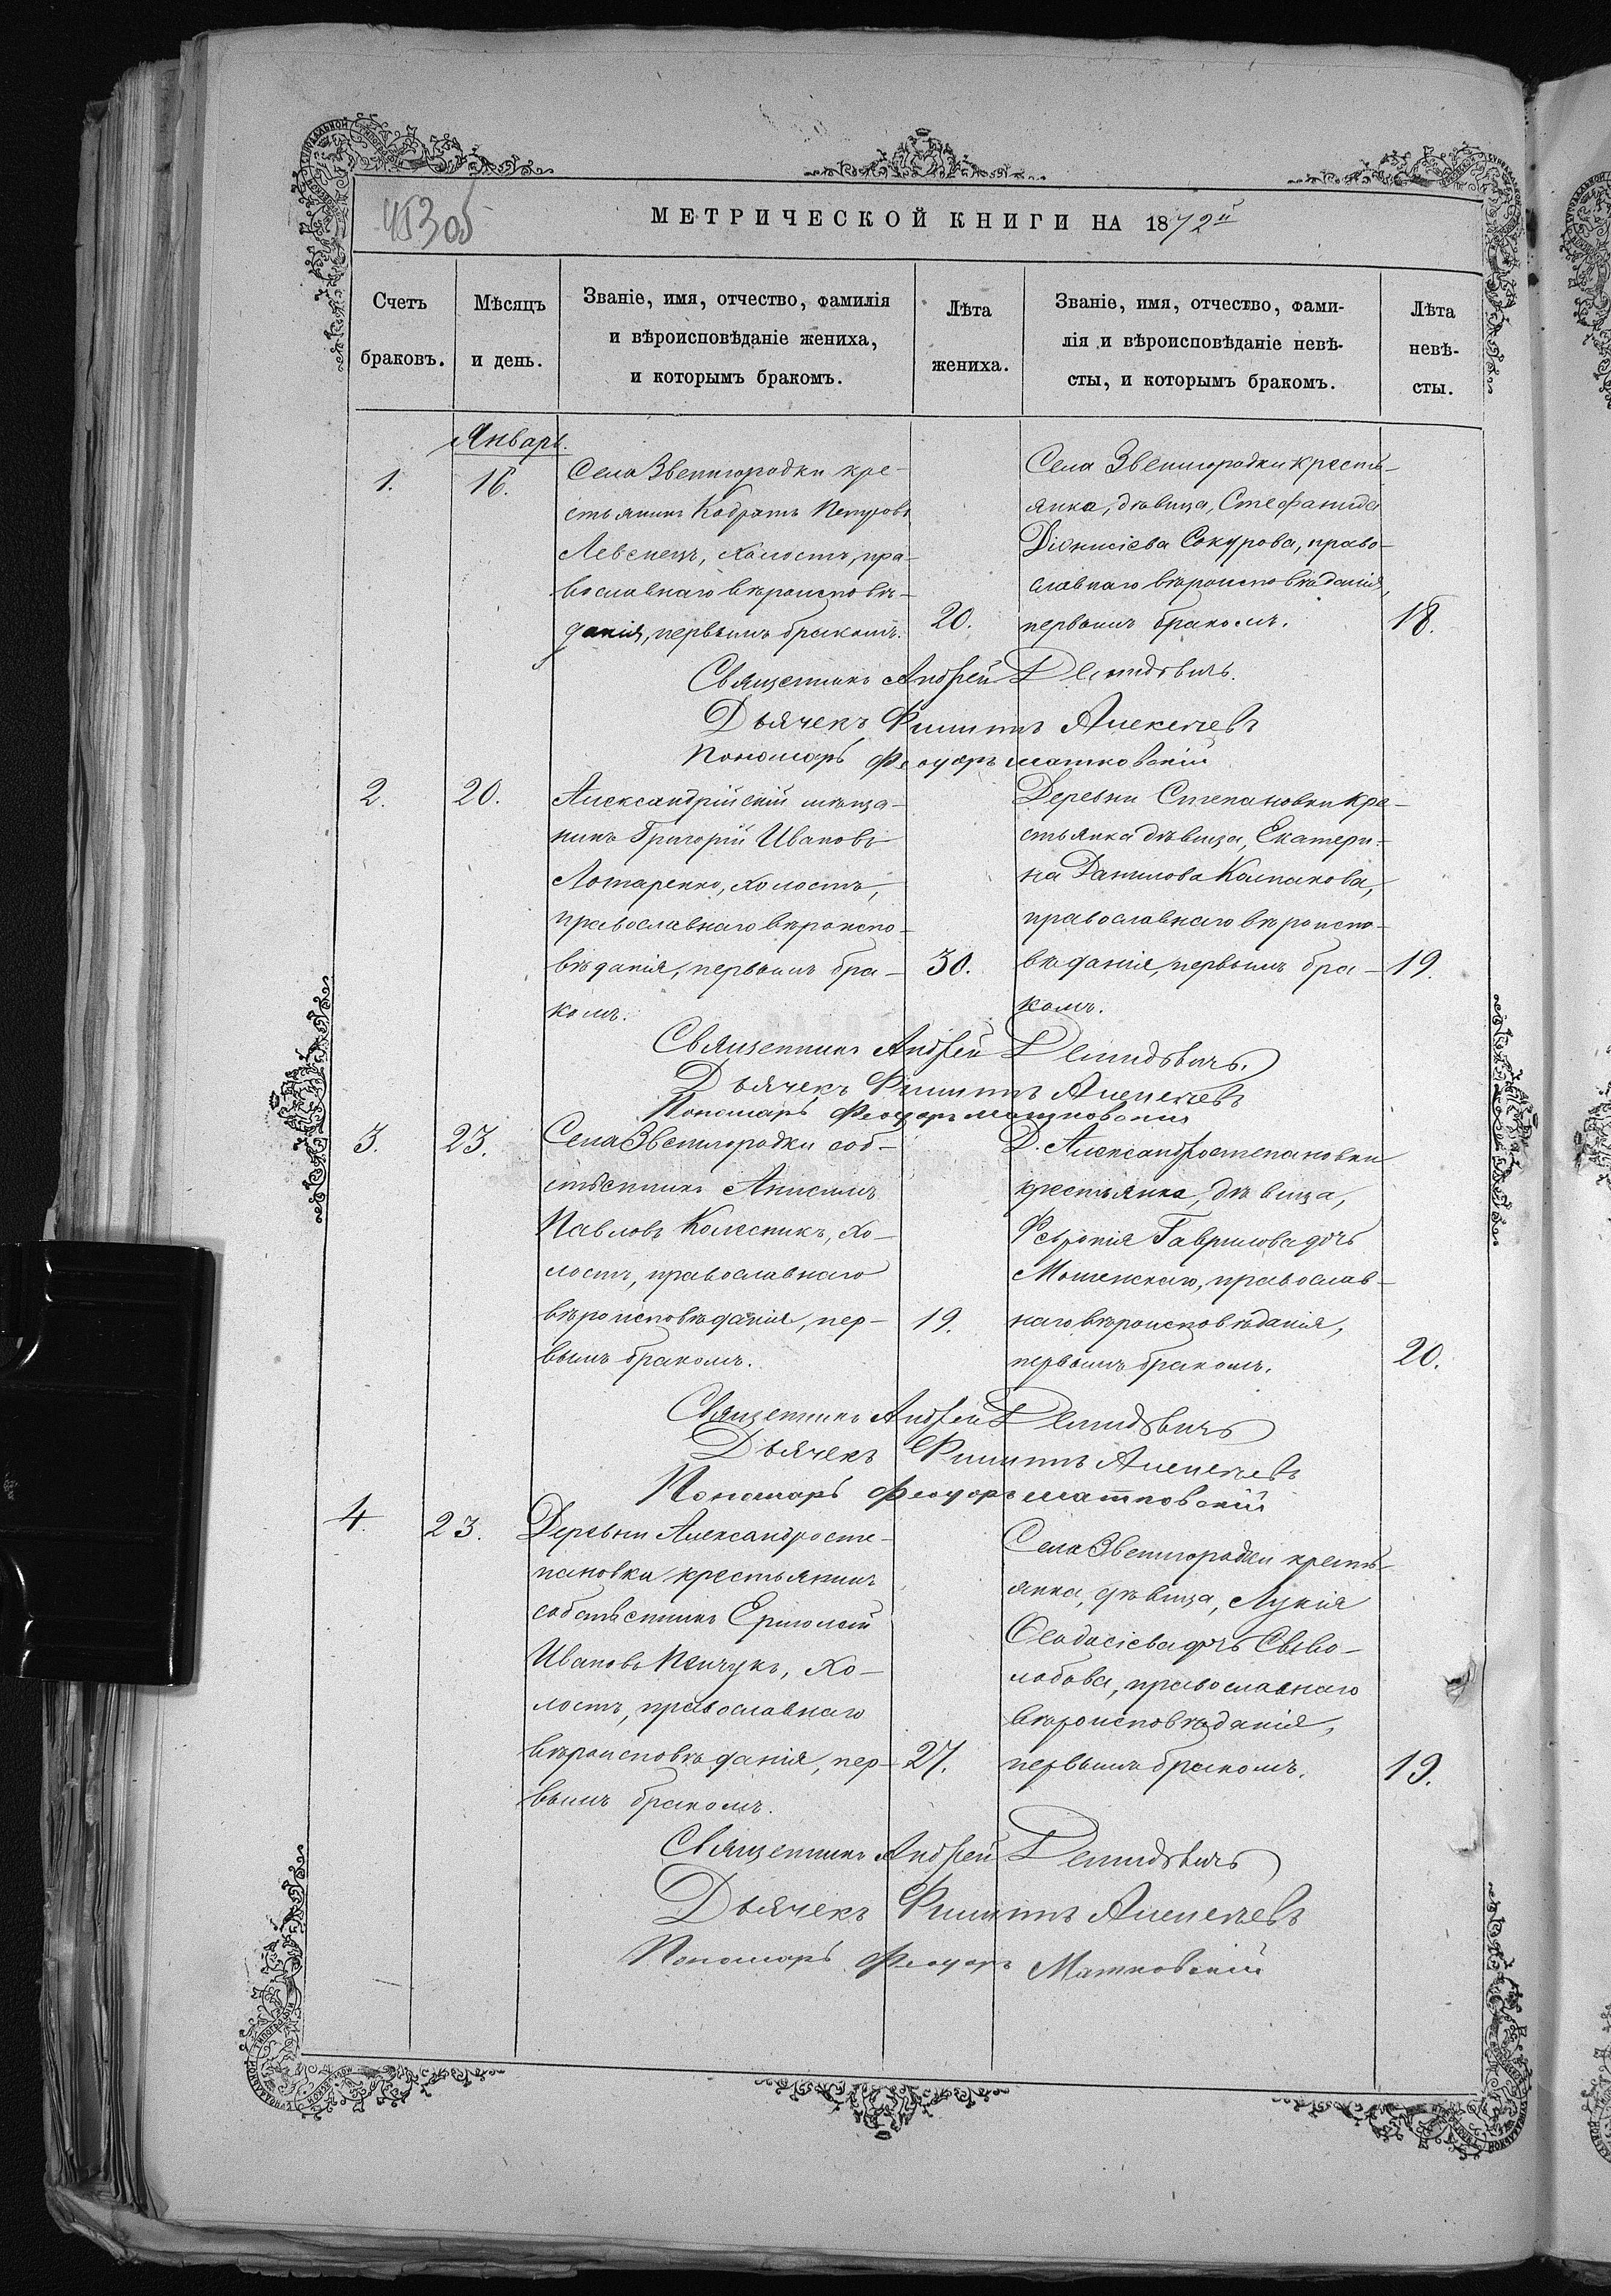 453 об
МЕТРИЧЕСКОЙ КНИГИ НА 1872й
Счетъ
браковъ.
Мѣсяцъ
и день.
Званіе, имя, отчество, фамилія
и вѣроисповѣданіе жениха,
и которымъ бракомъ.
Лѣта
жениха.
Званіе, имя, отчество, фами-
лія и вѣроисповѣданіе невѣ-
сты, и которымъ бракомъ.
Лѣта
невѣ-
сты.
Январь.
1.
16.
Села Звенигородки кре-
стьянинъ Кодратъ Петровъ
Левенецъ, холостъ, пра-
вославнаго вѣроисповѣ-
данія, первымъ бракомъ.
20.
Села Звенигородки кресть-
янка, дѣвица, Стефанида
Діонисіева Сокурова, право-
славнаго вѣроисповѣданія,
первымъ бракомъ.
18.
Священникъ Андрей Демидовичъ.
Дьячекъ Филиппъ Алексѣевъ
Пономарь Феодоръ Матковскій
2.
20.
Александрійскій мѣща-
нинъ Григорій Ивановъ
Лотаренко, холостъ,
православнаго вѣроиспо-
вѣданія, первымъ бра-
комъ.
30.
Деревни Степановки кре-
стьянка дѣвица, Екатери-
на Данилова Колпакова,
православнаго вѣроиспо-
вѣданія, первымъ бра-
комъ.
19.
Священникъ Андрей Демидовичъ.
Дьячекъ Филиппъ Алексѣевъ
Пономарь Феодоръ Матковскій
3.
23.
Села Звенигородки соб-
ственникъ Анисимъ
Павловъ Колесникъ, хо-
лостъ, православнаго
вѣроисповѣданія, пер-
вымъ бракомъ.
19.
Д. Александростепановки
крестьянка, дѣвица,
Феѵронія Гаврилова дочь
Мошенскаго, православ-
наго вѣроисповѣданія,
первымъ бракомъ.
20.
Священникъ Андрей Демидовичъ
Дьячекъ Филиппъ Алексѣевъ
Пономарь Феодоръ Матковскій
4.
23.
Деревни Александросте-
пановки крестьянинъ
собственникъ Ермолай
Ивановъ Пенчукъ, хо-
лостъ, православнаго
вѣроисповѣданія, пер-
вымъ бракомъ.
27.
Села Звенигородки кресть-
янка, дѣвица, Лукія
Ѳеодосіева дочь Свѣво-
лобова, православнаго
вѣроисповѣданія,
первымъ бракомъ.
19.
Священникъ Андрей Демидовичъ
Дьячекъ Филиппъ Алексѣевъ
Пономарь Феодоръ Матковскій